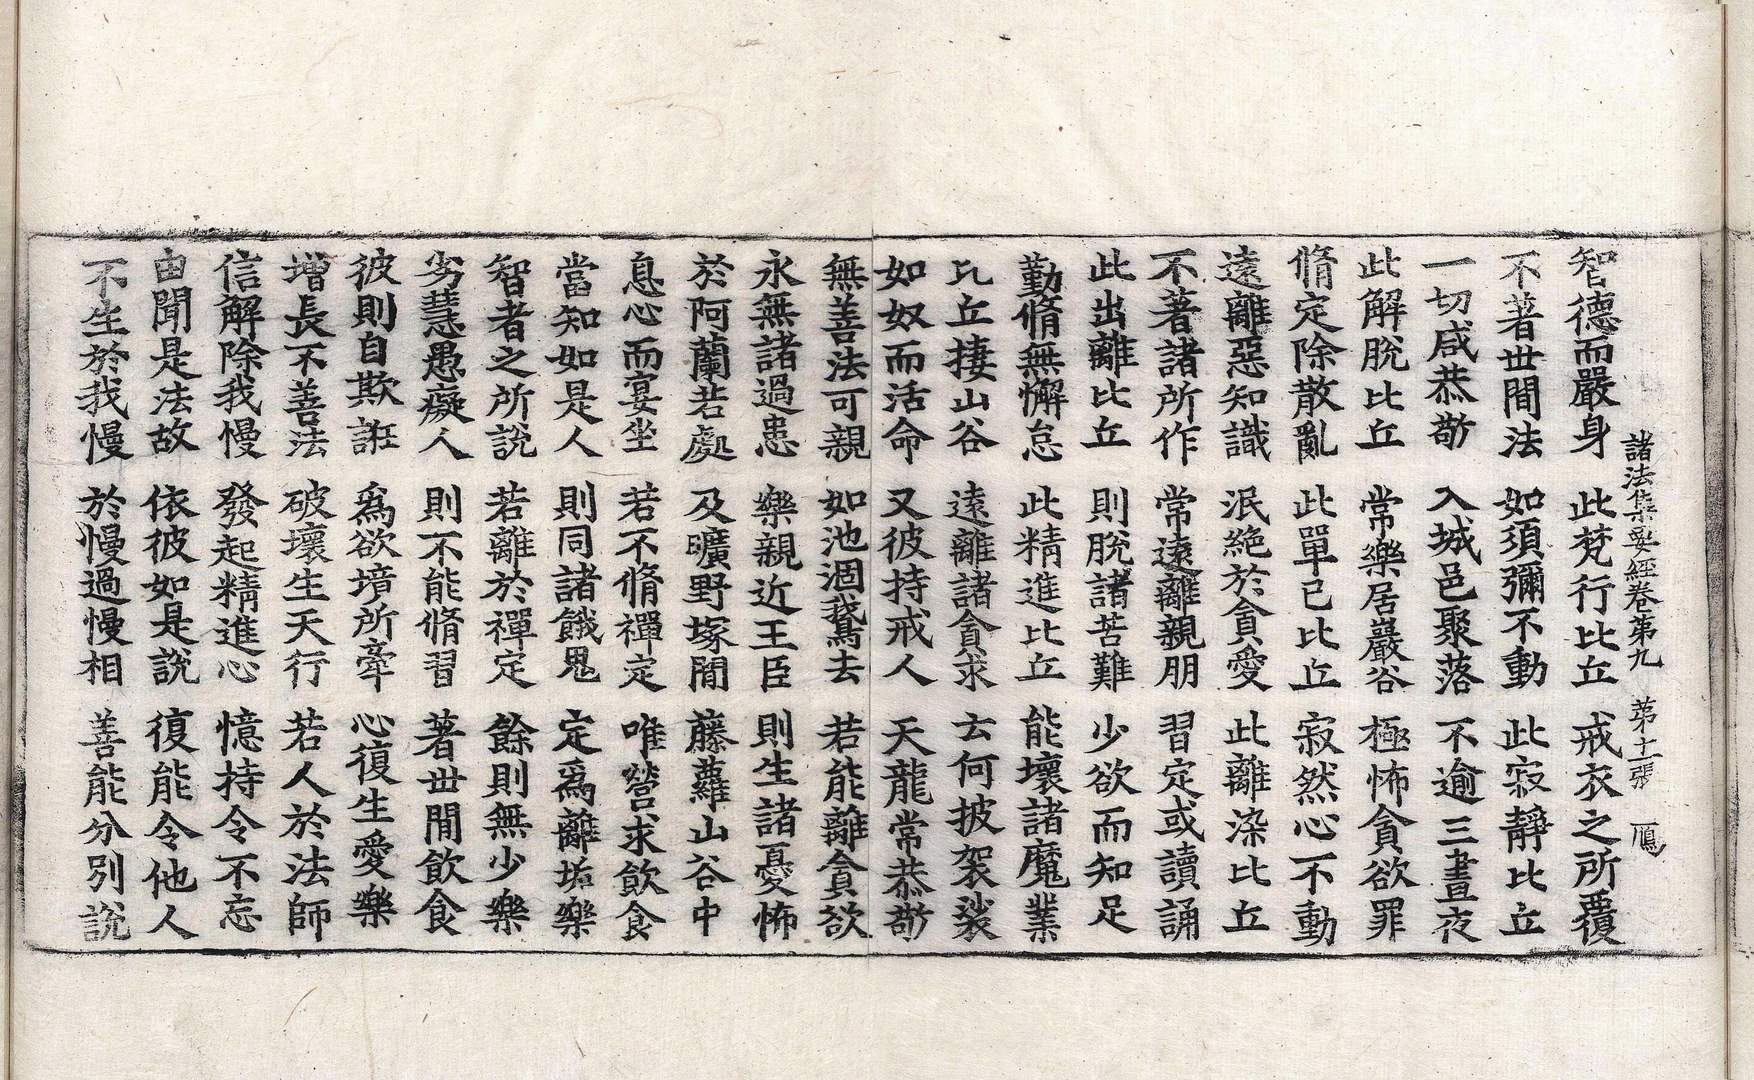 諸法集要經卷第九　第十一張　鴈
智德而嚴身　此梵行比丘　戒衣之所覆
不著世間法　如須彌不動　此寂靜比丘
一切咸恭敬　入城邑聚落　不逾三晝夜
此解脫比丘　常樂居巖谷　極怖貪欲罪
脩定除散亂　此單已比丘　寂然心不動
遠離惡知識　泯絕於貪愛　此離染比丘
不著諸所作　常遠離親朋　習定或讀誦
此出離比丘　則脫諸苦難　少欲而知足
勤脩無懈怠　此精進比丘　能壞諸魔業
比丘捿山谷　遠離諸貪求　云何披袈裟
如奴而活命　又彼持戒人　天龍常恭敬
無善法可親　如池涸鵞去　若能離貪欲
永無諸過患　樂親近王臣　則生諸憂怖
於阿蘭若處　及曠野塚間　藤蘿山谷中
息心而宴坐　若不脩禪定　唯營求飲食
當知如是人　則同諸餓鬼　定爲離垢樂
智者之所說　若離於禪定　餘則無少樂
劣慧愚癡人　則不能脩習　著世間飲食
彼則自欺誑　爲欲境所牽　心復生愛樂
增長不善法　破壞生天行　若人於法師
信解除我慢　發起精進心　憶持令不忘
由聞是法故　依彼如是說　復能令他人
不生於我慢　於慢過慢相　善能分別說